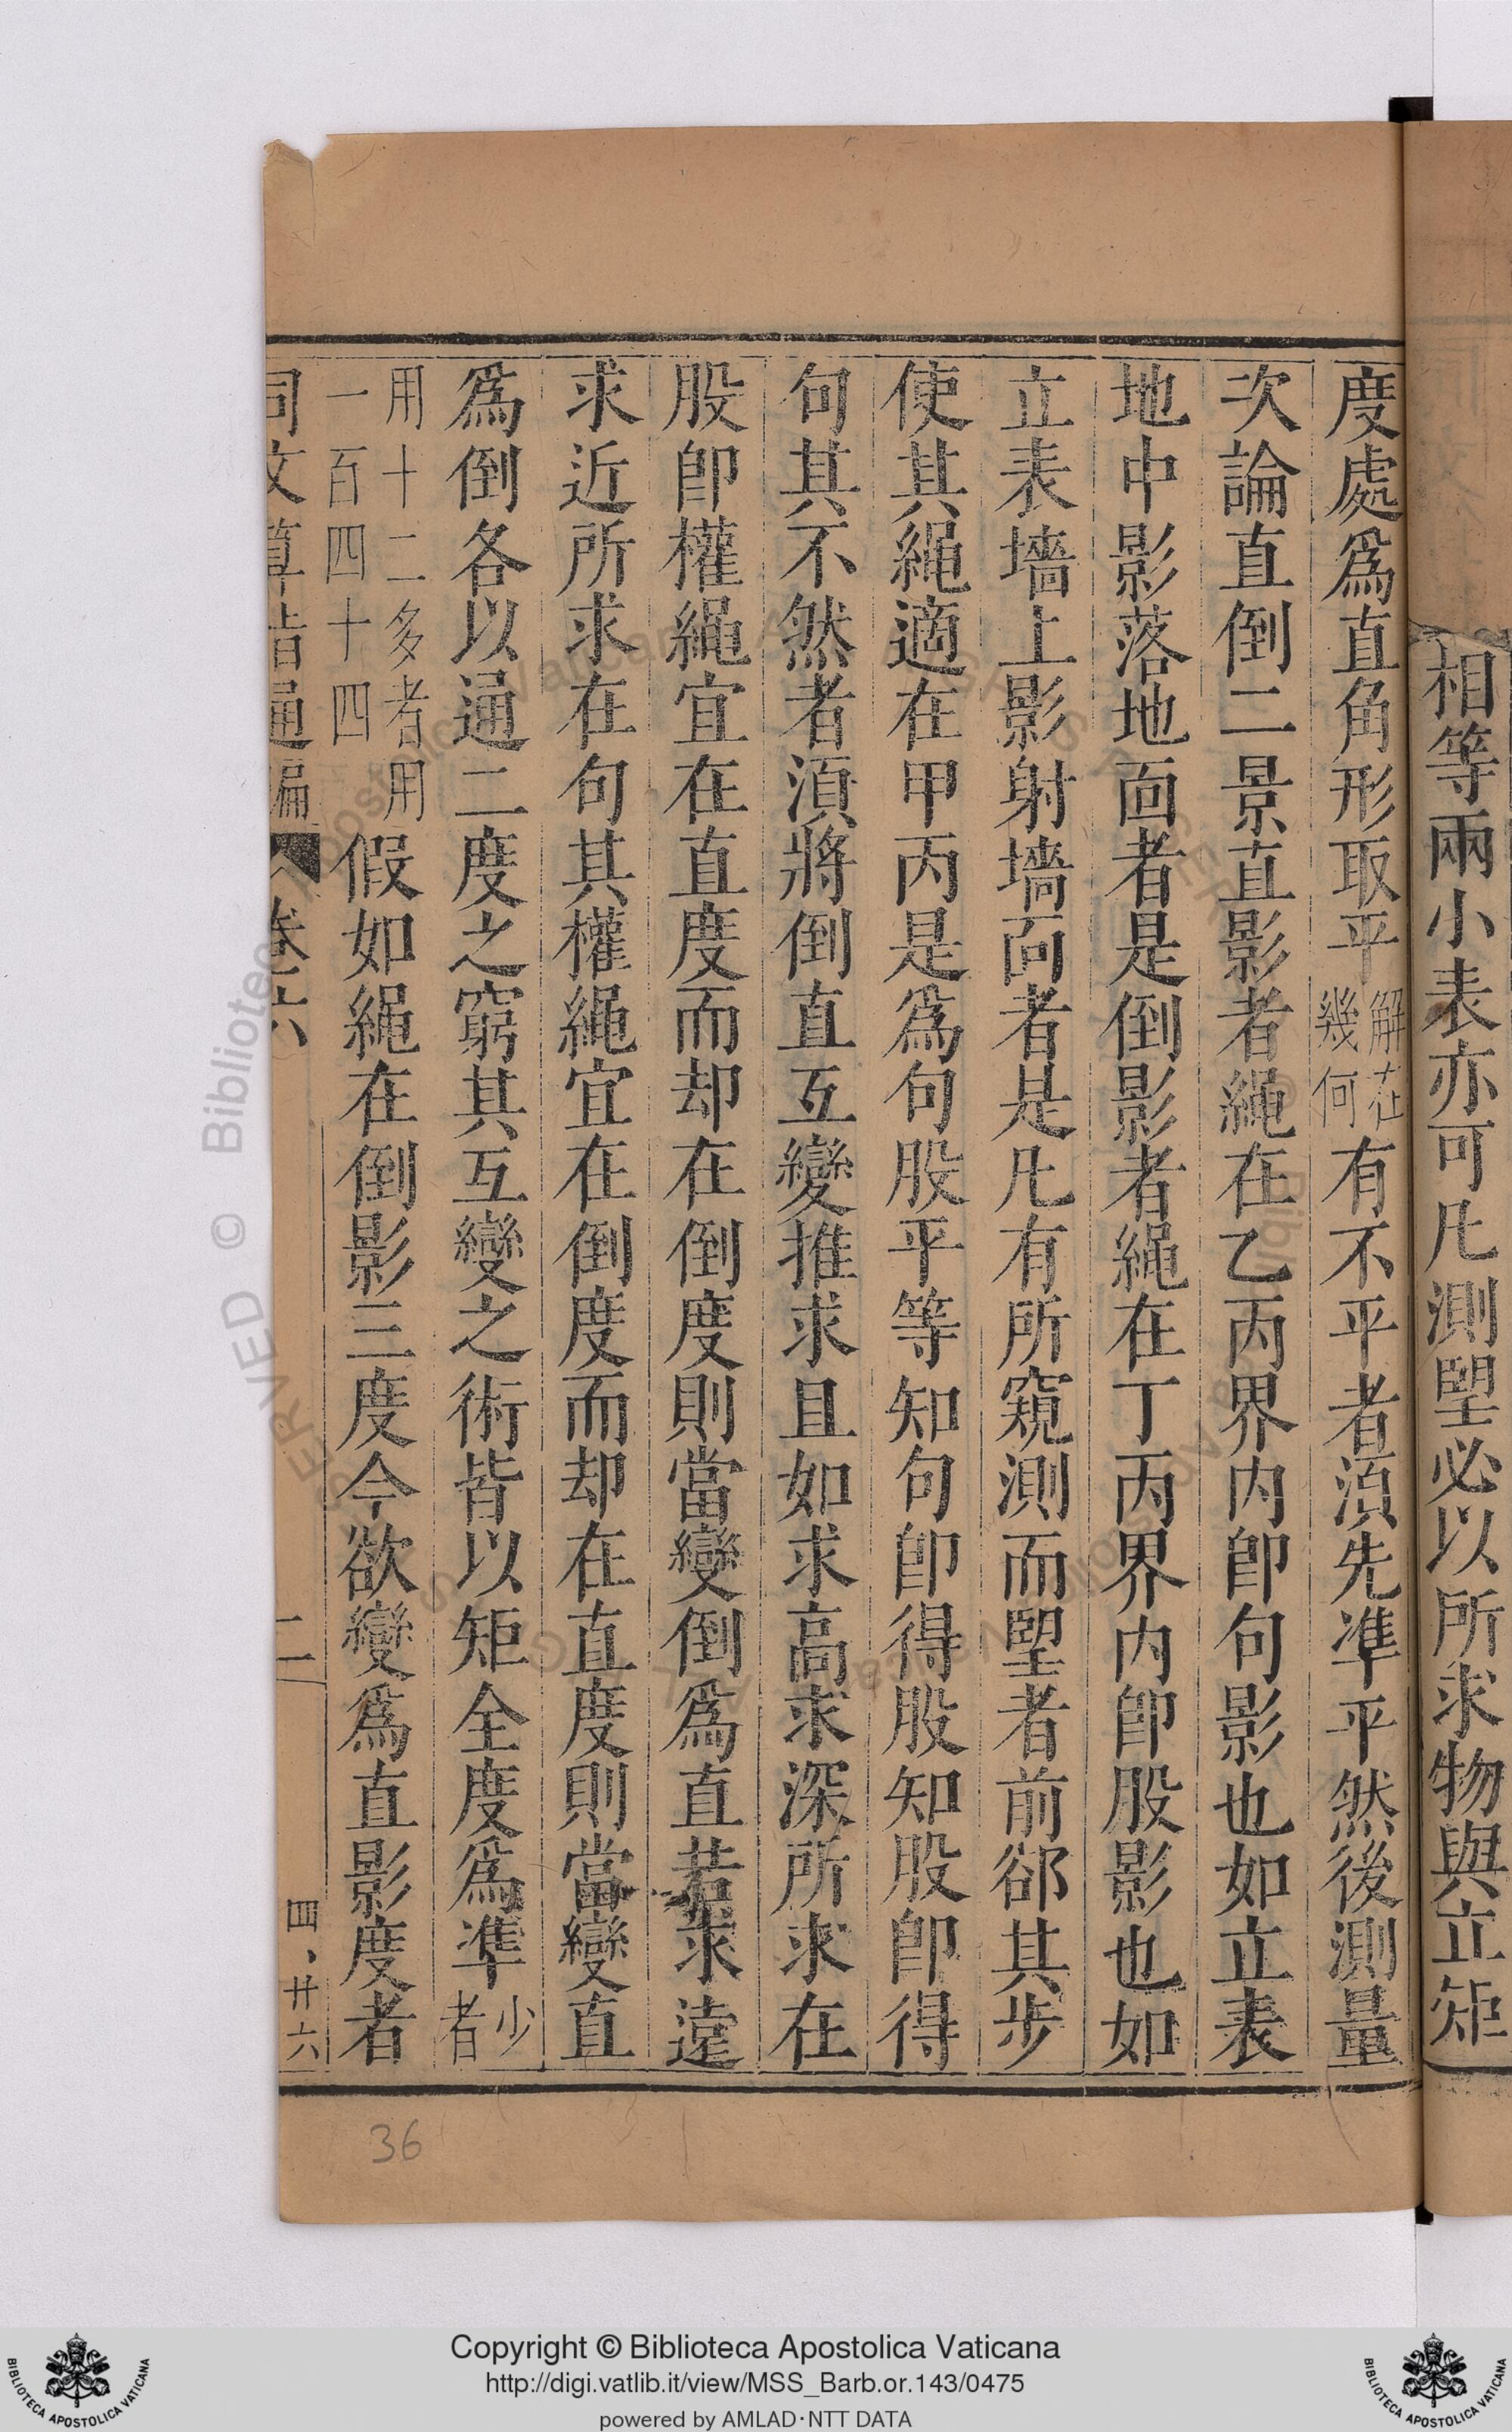 相等兩小表亦可凡測望必以所求物與立矩
度處爲直角形取平解在幾何有不平者湏先準平然後測量
次論直倒二景直影者繩在乙丙界内卽句影也如立表
地中影落地面者是倒影者繩在丁丙界内卽股影也如
立表墻上影射墻向者是凡有所窺測而望者前郤其步
使其繩適在甲丙是爲句股平等知句卽得股知股卽得
句其不然者湏將倒直互變推求且如求高求深所求在
股卽權繩宜在直度而却在倒度則當變倒爲直若求遠
求近所求在句其權繩宜在倒度而却在直度則當變直
爲倒各以通二度之窮其互變之術皆以矩全度爲準少者
用十二多者用一百四十四假如繩在倒影三度今欲變爲直影度者
同文算指通編 卷六 二 四、廿六
36
RESERVED © Biblioteca Apostolica Vaticana
Copyright © Biblioteca Apostolica Vaticana
http://digi.vatlib.it/view/MSS_Barb.or.143/0475
powered by AMLAD·NTT DATA
BIBLIOTECA APOSTOLICA VATICANA
BIBLIOTECA APOSTOLICA VATICANA